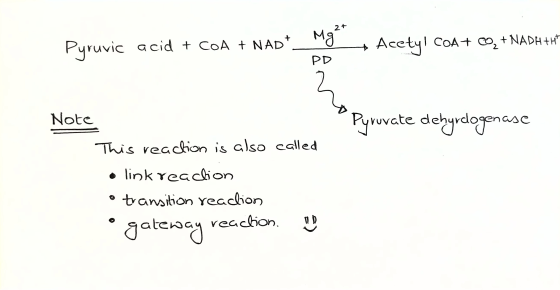 Pyruvic acid + CoA + NAD⁺ Mg²⁺ → Acetyl CoA + CO₂ + NADH + H⁺
PD
Pyruvate dehyrdogenase
Note
This reaction is also called
• link reaction
• transition reaction
• gateway reaction.